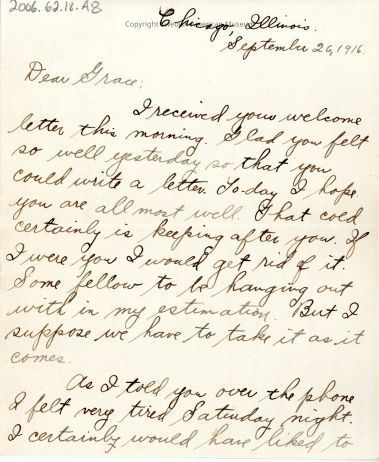 2006.62.18.A8
Chicago, Illinois.
September 26, 1916.
Dear Grace:
I received your welcome
letter this morning. Glad you felt
so well yesterday so that you
could write a letter. To-day I hope
you are all most well. That cold
certainly is keeping after you. If
I were you I would get rid of it.
Some fellow to be hanging out
with in my estimation. But I
suppose we have to take it as it
comes.
As I told you over the phone
I felt very tired Saturday night.
I certainly would have liked to